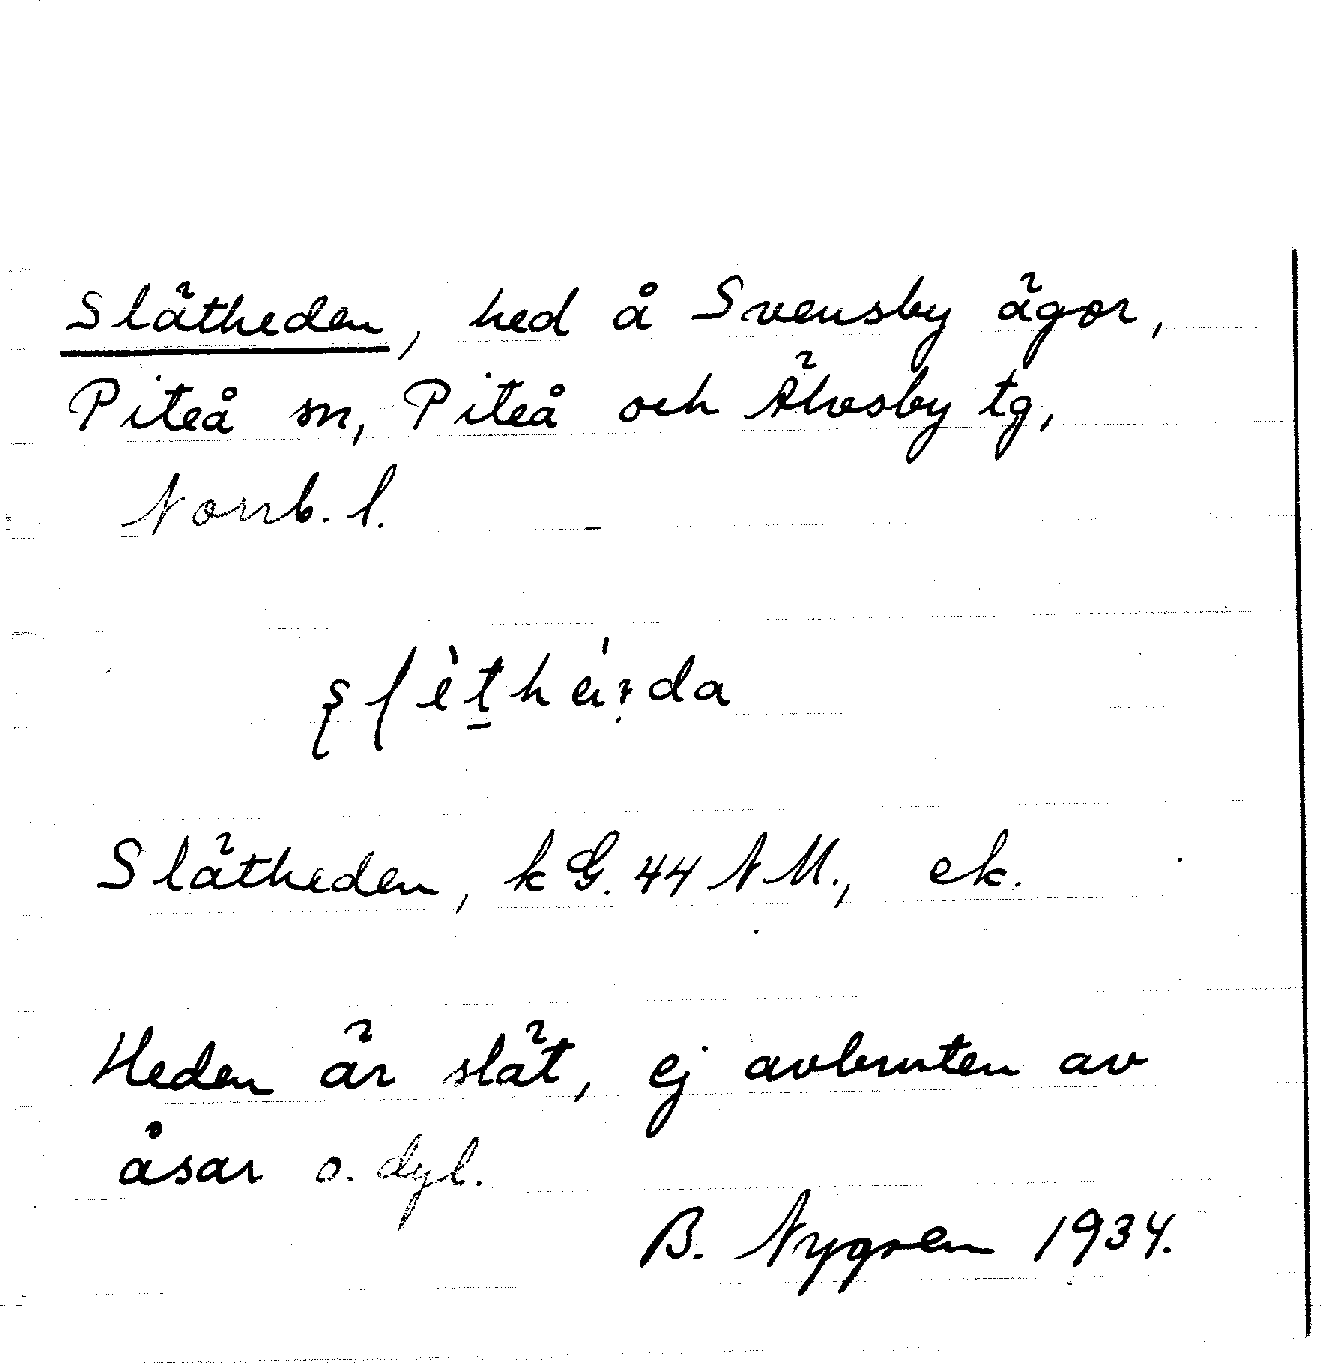 Slätheden, hed å Svensby ägor,
Piteå sn, Piteå och Älvsby tg,
Norrb. l.
Slätheden, k G. 44 N M., ek.
Heden är slät, ej avbruten av
åsar o. dyl.
B. Nygren 1934.